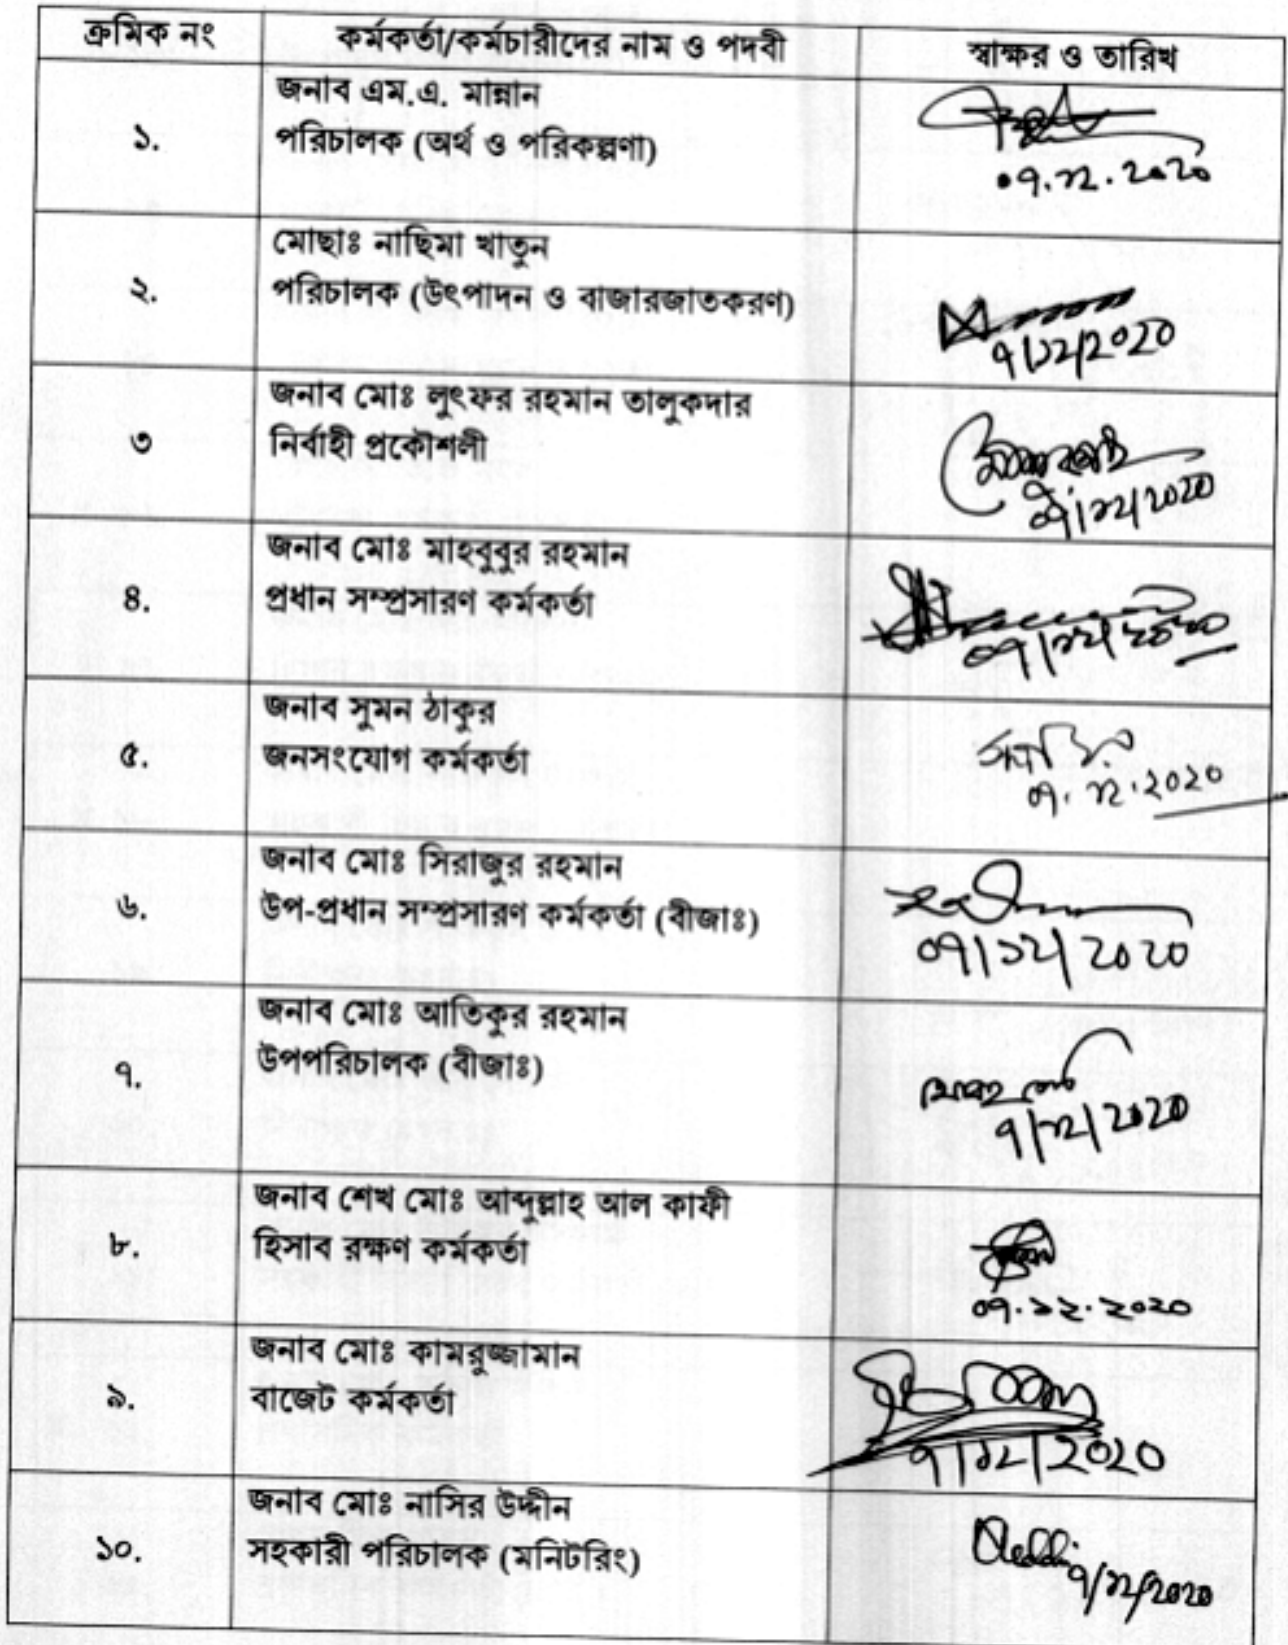 ক্রমিক নং কর্মকর্তা/কর্মচারীদের নাম ও পদবী স্বাক্ষর ও তারিখ
জনাব এম.এ. মান্নান
১. পরিচালক (অর্থ ও পরিকল্পণা)
০৭.১২.২০২০
মোছাঃ নাছিমা খাতুন
২. পরিচালক (উৎপাদন ও বাজারজাতকরণ)
৭/১২/২০২০
জনাব মোঃ লুৎফর রহমান তালুকদার
৩ নির্বাহী প্রকৌশলী
০৭/১২/২০২০
জনাব মোঃ মাহবুবুর রহমান
৪. প্রধান সম্প্রসারণ কর্মকর্তা
০৭/১২/২০২০
জনাব সুমন ঠাকুর
৫. জনসংযোগ কর্মকর্তা
০৭.১২.২০২০
জনাব মোঃ সিরাজুর রহমান
৬. উপ-প্রধান সম্প্রসারণ কর্মকর্তা (বীজাঃ)
০৭/১২/২০২০
জনাব মোঃ আতিকুর রহমান
৭. উপপরিচালক (বীজাঃ)
৭/১২/২০২০
জনাব শেখ মোঃ আব্দুল্লাহ আল কাফী
৮. হিসাব রক্ষণ কর্মকর্তা
০৭.১২.২০২০
জনাব মোঃ কামরুজ্জামান
৯. বাজেট কর্মকর্তা
৭/১২/২০২০
জনাব মোঃ নাসির উদ্দীন
১০. সহকারী পরিচালক (মনিটরিং)
৭/১২/২০২০